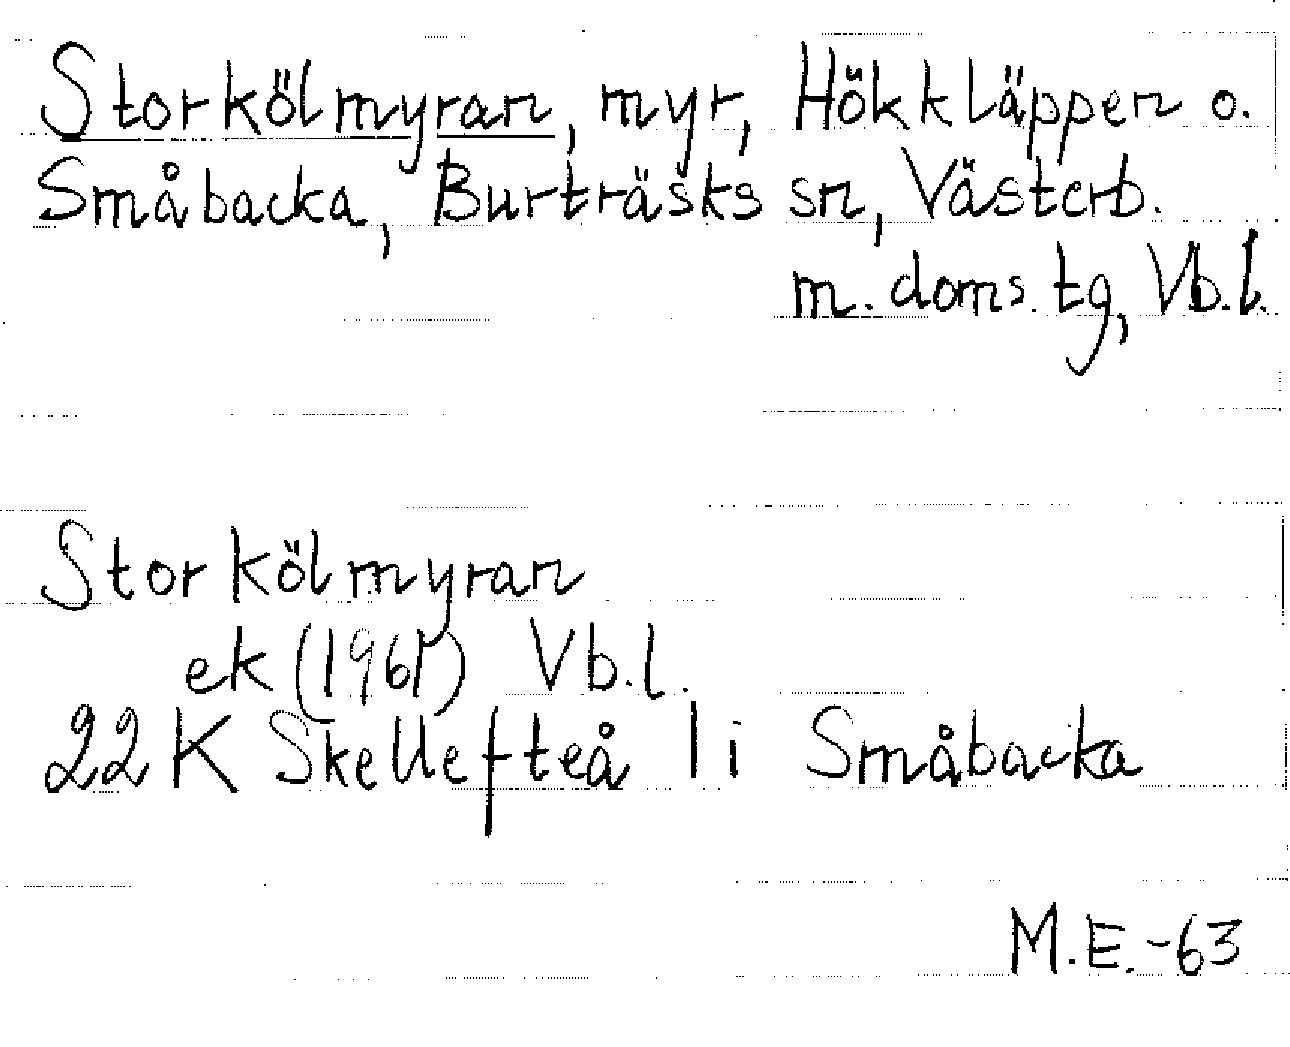 Storkölmyran, myr, Hökkläppen o.
Småbacka, Burträsks sn, Västerb.
m. doms. tg, Vb.l.
Storkölmyran
ek (1961) Vb.l.
22K Skellefteå 1 i Småbacka
M.E.-63